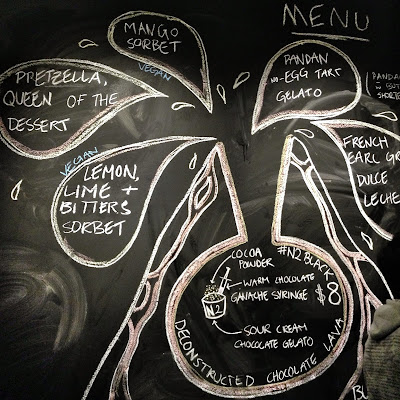 MENU
MANGO
SORBET
VEGAN
PRETZELLA,
QUEEN OF THE
DESSERT
PANDAN
NO-EGG TART
GELATO
PANDAN
VEGAN
LEMON,
LIME +
BITTERS
SORBET
FRENCH
EARL GR
DULCE
LECHE
COCOA
POWDER
#N2BLACK
$8
WARM CHOCOLATE
GANACHE SYRINGE
N2
SOUR CREAM
CHOCOLATE GELATO
DECONSTRUCTED CHOCOLATE LAVA